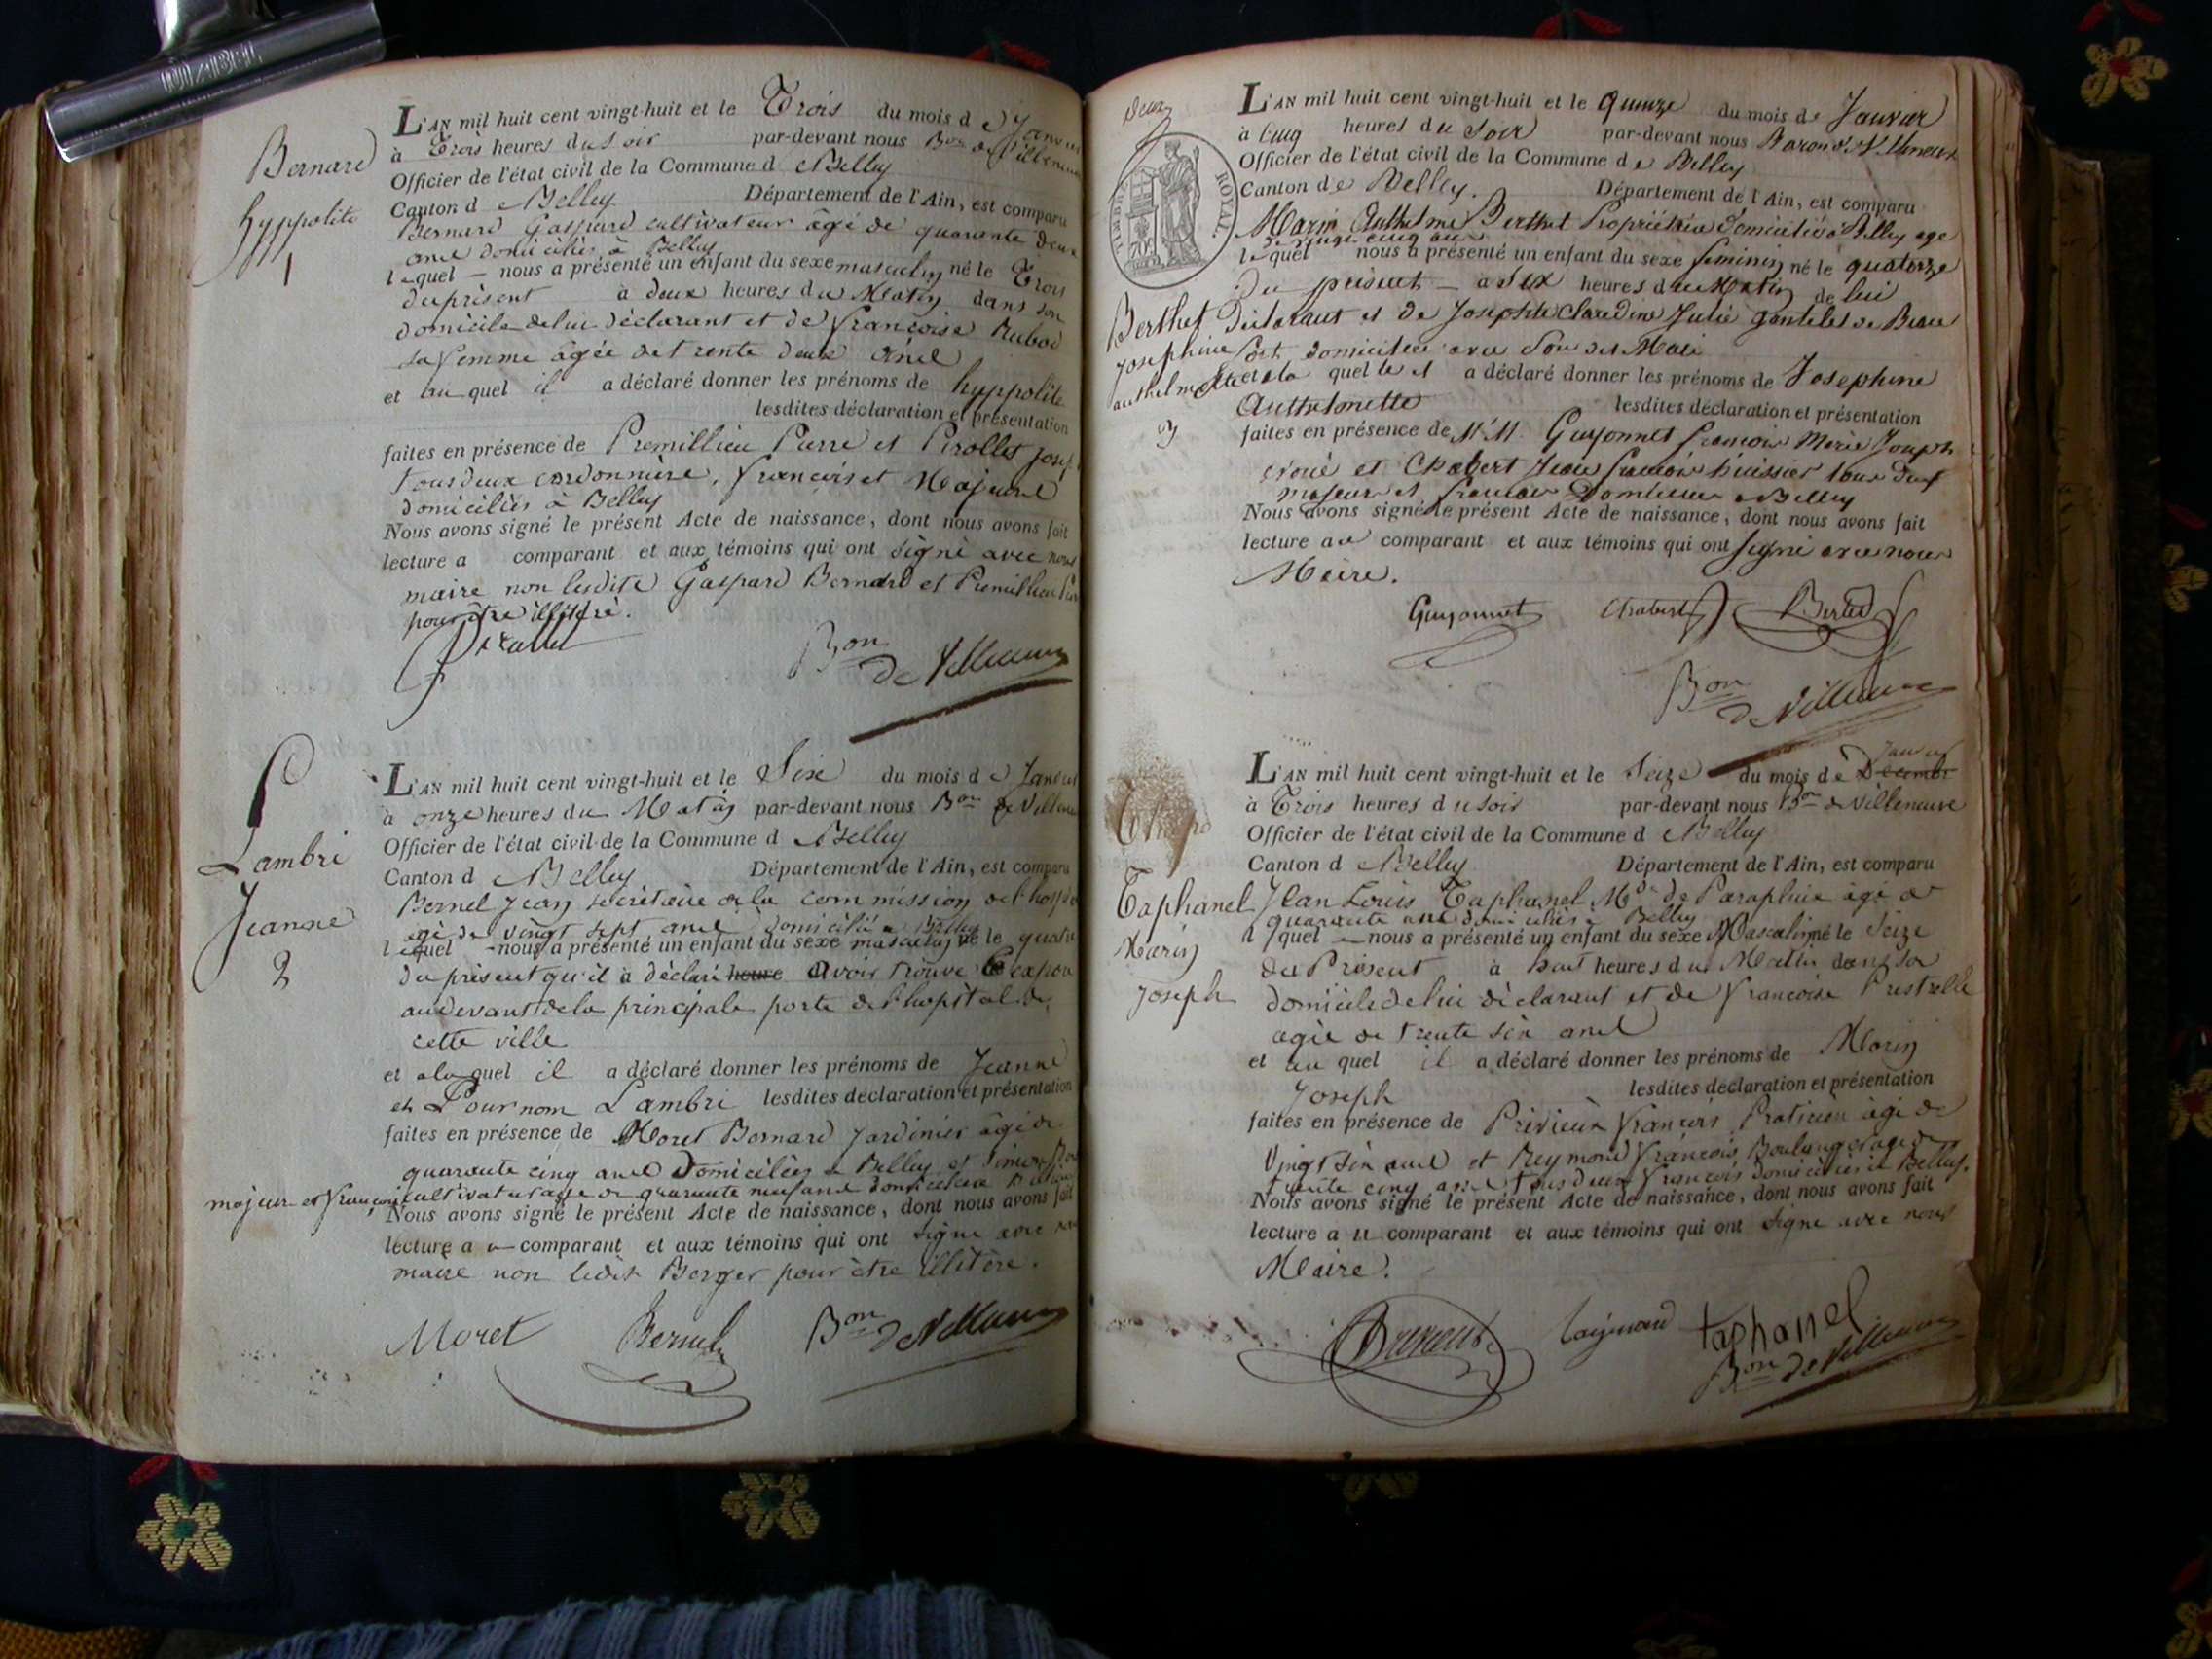 Bernard
hyppolite
1
L'AN mil huit cent vingt-huit et le Trois du mois de Janvier
à Trois heures du soir par-devant nous Bon de Villeneuve
Officier de l'état civil de la Commune d Belley
Canton d Belley Département de l'Ain, est comparu
Bernard Gaspard cultivateur âgé de quarante deux
ans domicilié à Belley
lequel nous a présenté un enfant du sexe masculin né le Trois
du présent à deux heures du Matin dans son
domicile de lui déclarant et de françoise Rubod
sa femme âgée de trente deux ans
et au quel il a déclaré donner les prénoms de hyppolite
lesdites déclaration et présentation
faites en présence de Premillieu Pierre et Pirollet Joseph
tous deux cordonniers, françois et Majeurs
domiciliés à Belley
Nous avons signé le présent Acte de naissance, dont nous avons fait
lecture a comparant et aux témoins qui ont signé avec nous
maire non lesdits Gaspard Bernard et Premillieu
pour être illitéré.
Pirollet
Bon
de Villeneuve
Lambri
Jeanne
2
L'AN mil huit cent vingt-huit et le Six du mois de Janvier
à onze heures du Matin par-devant nous Bon de Villeneuve
Officier de l'état civil de la Commune d Belley
Canton d Belley Département de l'Ain, est comparu
Bernel Jean secrétaire de la commission de l'hospice
agé de vingt sept ans domicilié a Belley
lequel nous a présenté un enfant du sexe masculin né le quatre
du présent qu'il à déclaré heure avoir trouvé exposé
au devant de la principale porte de l'hopital de
cette ville
et a la quel il a déclaré donner les prénoms de Jeanne
et Pour nom Lambri lesdites déclaration et présentation
faites en présence de Moret Bernard Jardinier âgé de
quarante cinq ans Domiciliés a Belley et Simon
majeur et françois cultivateur age de quarante neuf ans domicilié a
Nous avons signé le présent Acte de naissance, dont nous avons fait
lecture a u comparant et aux témoins qui ont signé avec nous
maire non ledit Berger pour être illitère.
Moret Bernel Bon de Villeneuve
Deux
TIMBRE ROYAL.
L'AN mil huit cent vingt-huit et le quinze du mois de Janvier
à Cinq heures du Soir par-devant nous Baron de Villeneuve
Officier de l'état civil de la Commune de Belley
Canton de Belley. Département de l'Ain, est comparu
Marin Anthelme Berthet Propriétaire domicilié à Belley age
de vingt cinq ans
lequel nous a présenté un enfant du sexe feminin né le quatorze
Du présent à Six heures du Matin de lui
Berthet
Josephine
anthelmette
3
Déclarant et de Josephte Claudine Julie ganteles de Beau
fort domiciliée avec son dit Mari
et a la quelle il a déclaré donner les prénoms de Josephine
Anthelmette lesdites déclaration et présentation
faites en présence de M.M. Guyonnet françois Marie Joseph
avoué et Chabert Jean françois huissier tous deux
majeurs et françois Domiciliés a Belley
Nous avons signé le présent Acte de naissance, dont nous avons fait
lecture au comparant et aux témoins qui ont signé avec nous
Maire.
Guyonnet Chabert Berthet
Bon
de Villeneuve
L'AN mil huit cent vingt-huit et le Seize du mois de Decembre Janvier
à Trois heures du soir par-devant nous Bon de Villeneuve
Officier de l'état civil de la Commune d Belley
Canton d Belley Département de l'Ain, est comparu
Taphanel
Marin
Joseph
Jean Louis Taphanel Md de Paraphie agé de
quarante ans domicilié a Belley
lequel nous a présenté un enfant du sexe Masculin né le Seize
du Présent à huit heures du Matin dans son
domicile de lui déclarant et de françoise Prestelle
agée de trente six ans
et au quel il a déclaré donner les prénoms de Marin
Joseph lesdites déclaration et présentation
faites en présence de François Praticien âgé de
Vingt six ans et Reymond François Boulanger age de
trente cinq ans tous deux françois domiciliés a Belley.
Nous avons signé le présent Acte de naissance, dont nous avons fait
lecture a u comparant et aux témoins qui ont signé avec nous
Maire.
taphanel
Bon de Villeneuve